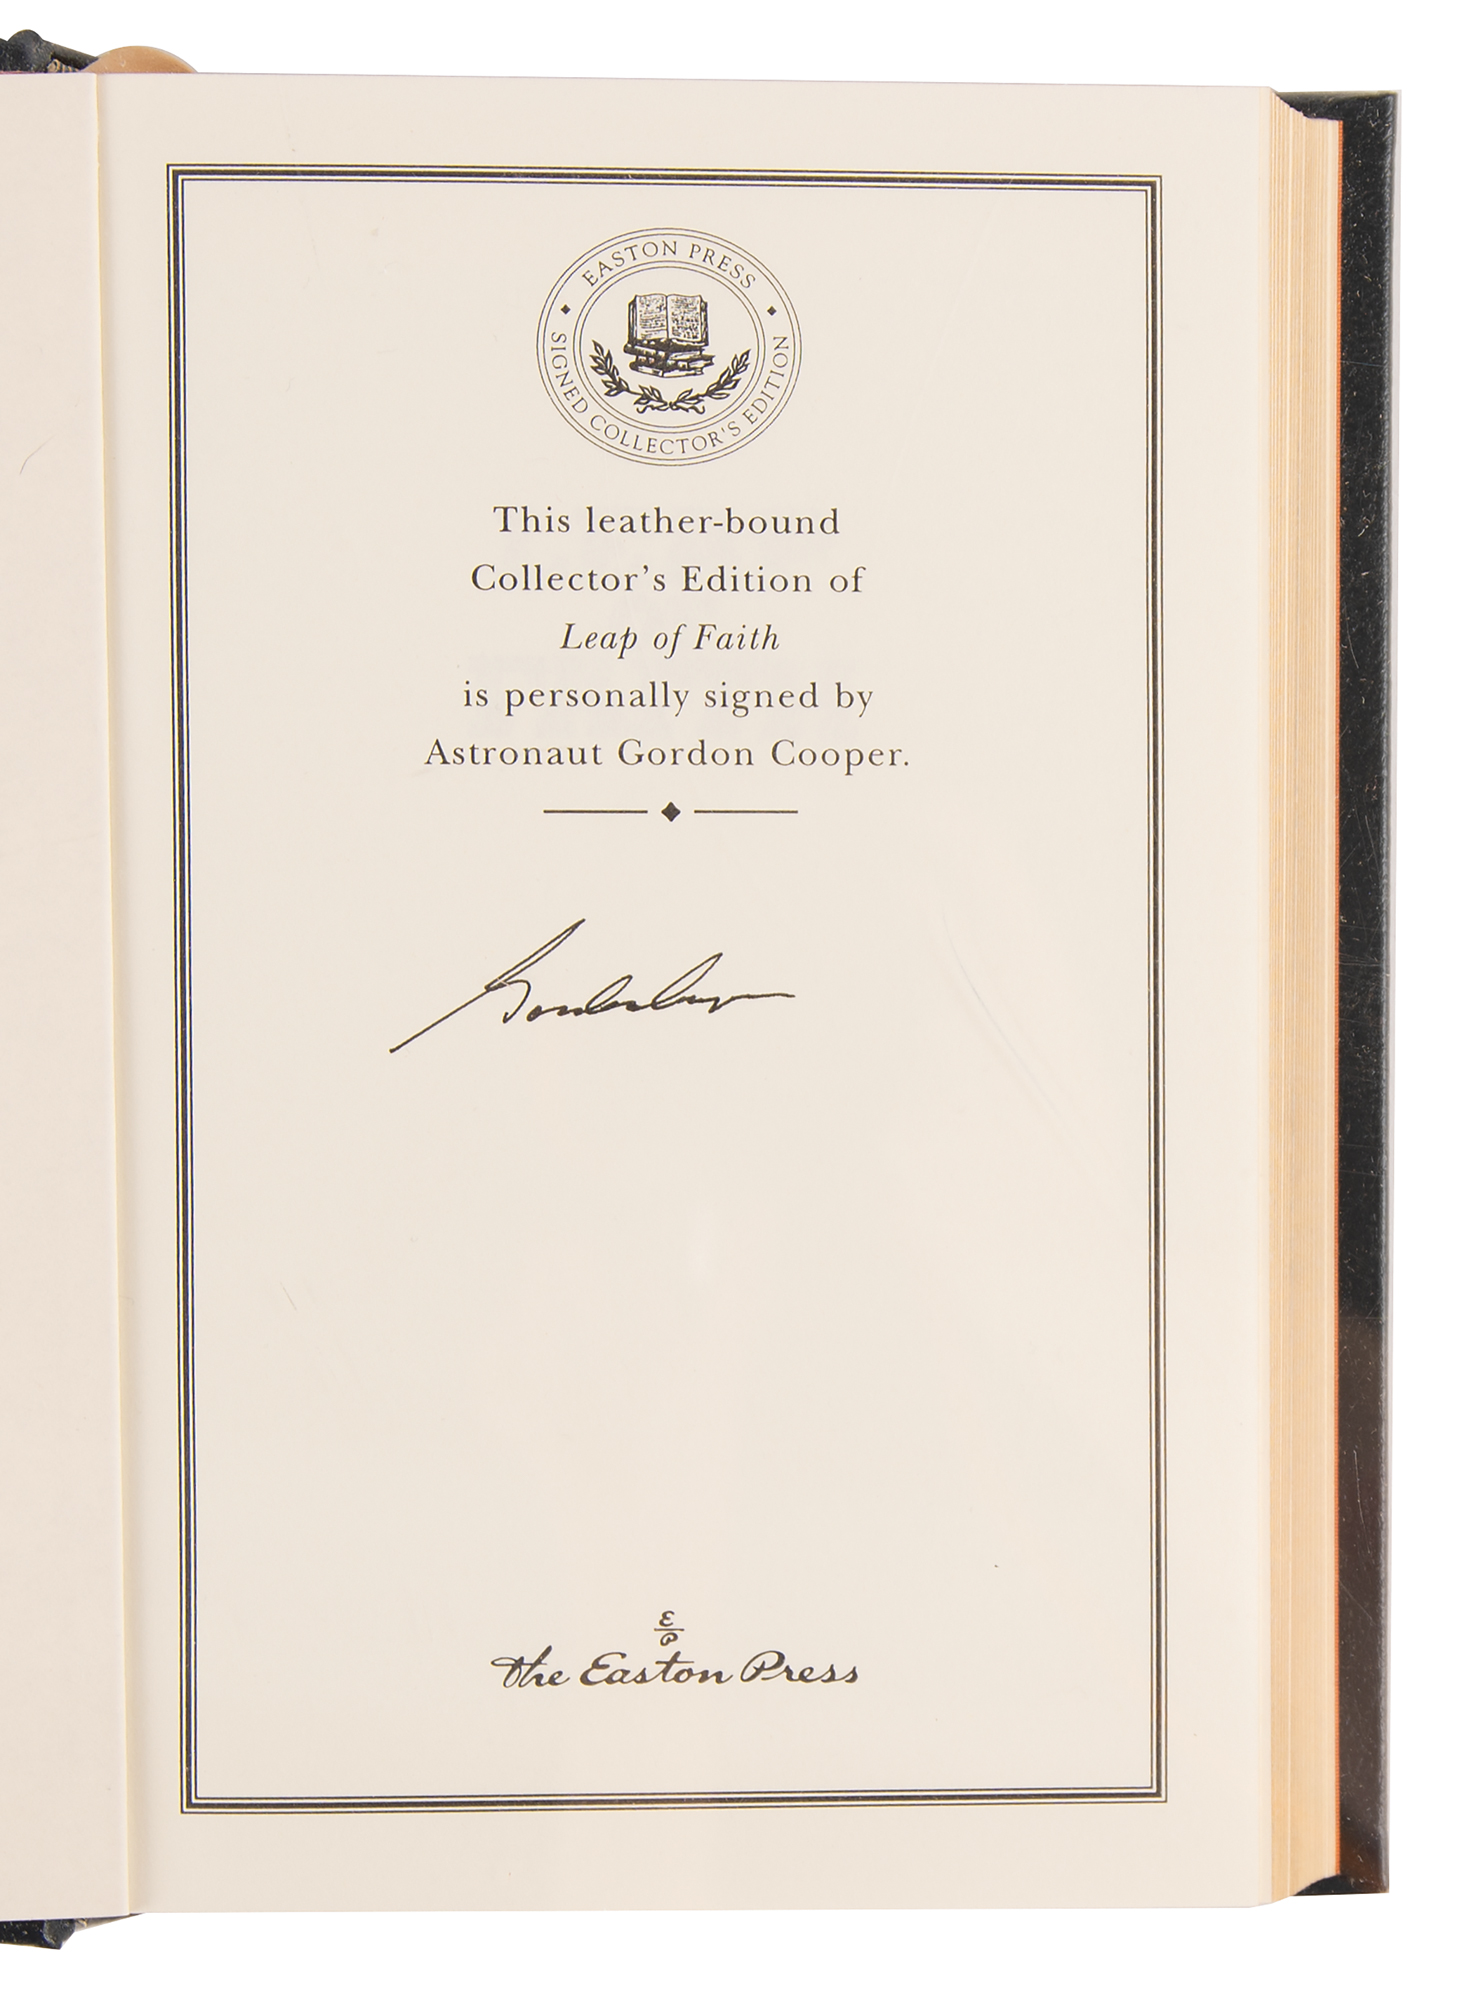 EASTON PRESS
SIGNED COLLECTOR'S EDITION
This leather-bound
Collector's Edition of
Leap of Faith
is personally signed by
Astronaut Gordon Cooper.
E
P
The Easton Press